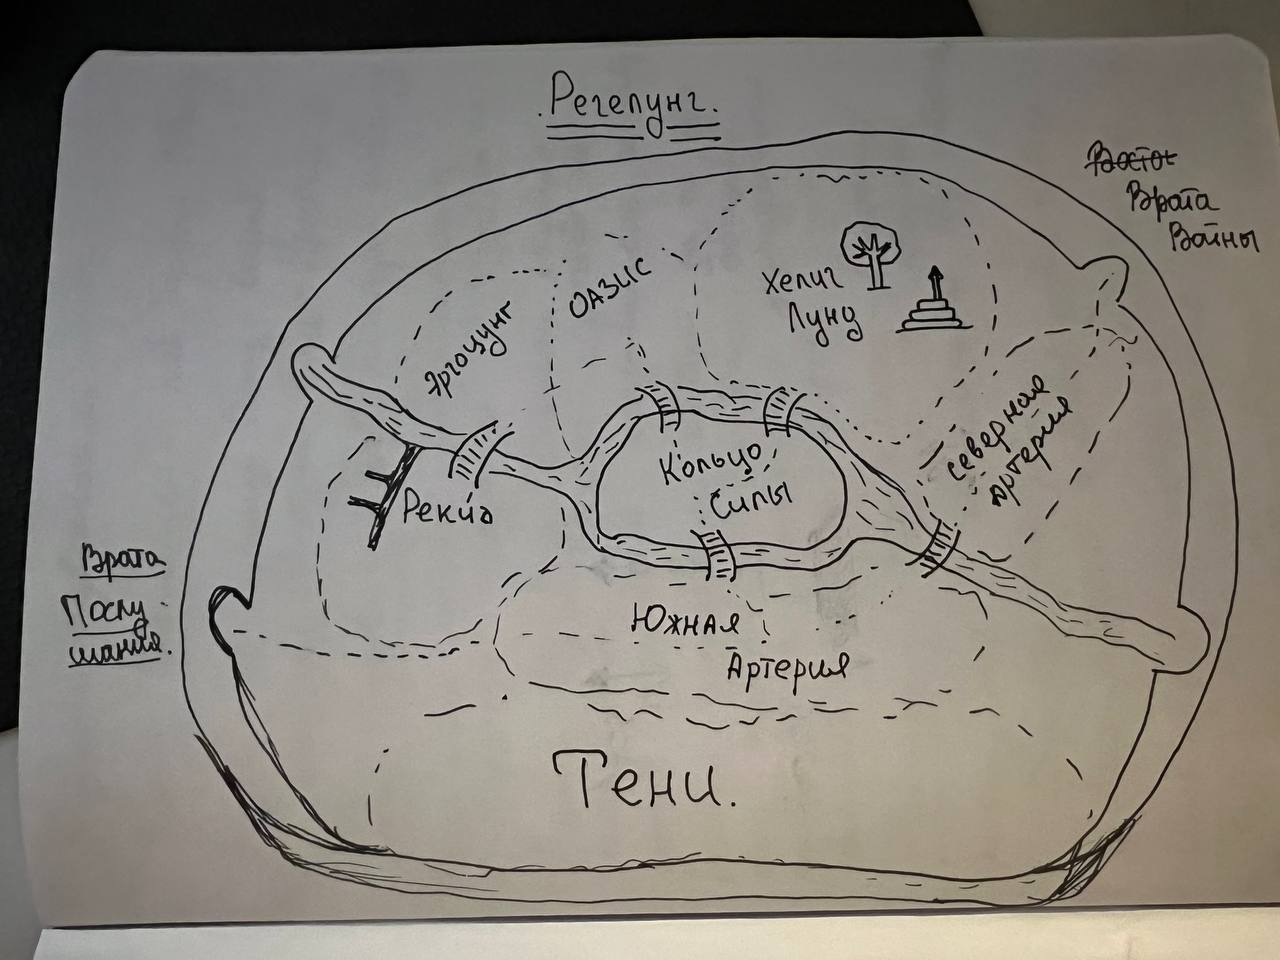 .Регелунг.
Восток
Врата
Войны
Хелиг
Лунд
Оазис
Эргоцунг
Северная
Артерия
Кольцо
Силы
Рекия
Врата
Послу
шания.
Южная
Артерия
Тени.